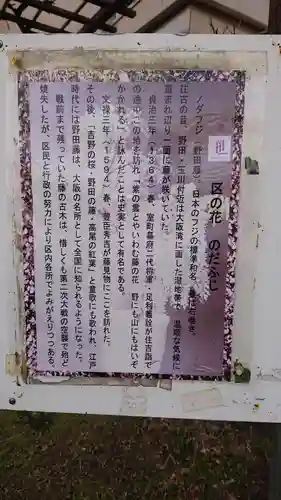 区の花 のだふじ
ノダフジ(野田藤) 日本のフジの標準和名 蔓は右巻き。
往古の昔、野田・玉川付近は大阪湾に面した湿地帯で、温暖な気候に
恵まれ辺り一面に藤が咲いていた。
貞治三年(1364)春、室町幕府二代将軍・足利義詮が住吉詣で
の途中この地を訪れ「紫の雲とやいわむ藤の花 野にも山にもはいぞ
かかれる」と詠んだことは史実として有名である。
文禄三年(1594)春、豊臣秀吉が藤見物にここを訪れた。
その後、「吉野の桜・野田の藤・高尾の紅葉」と童歌にも歌われ、江戸
時代には野田藤は、大阪の名所として全国に知られるようになった。
戦前まで残っていた藤の古木は、惜しくも第二次大戦の空襲で殆ど
焼失したが、区民と行政の努力により区内各所でよみがえりつつある。